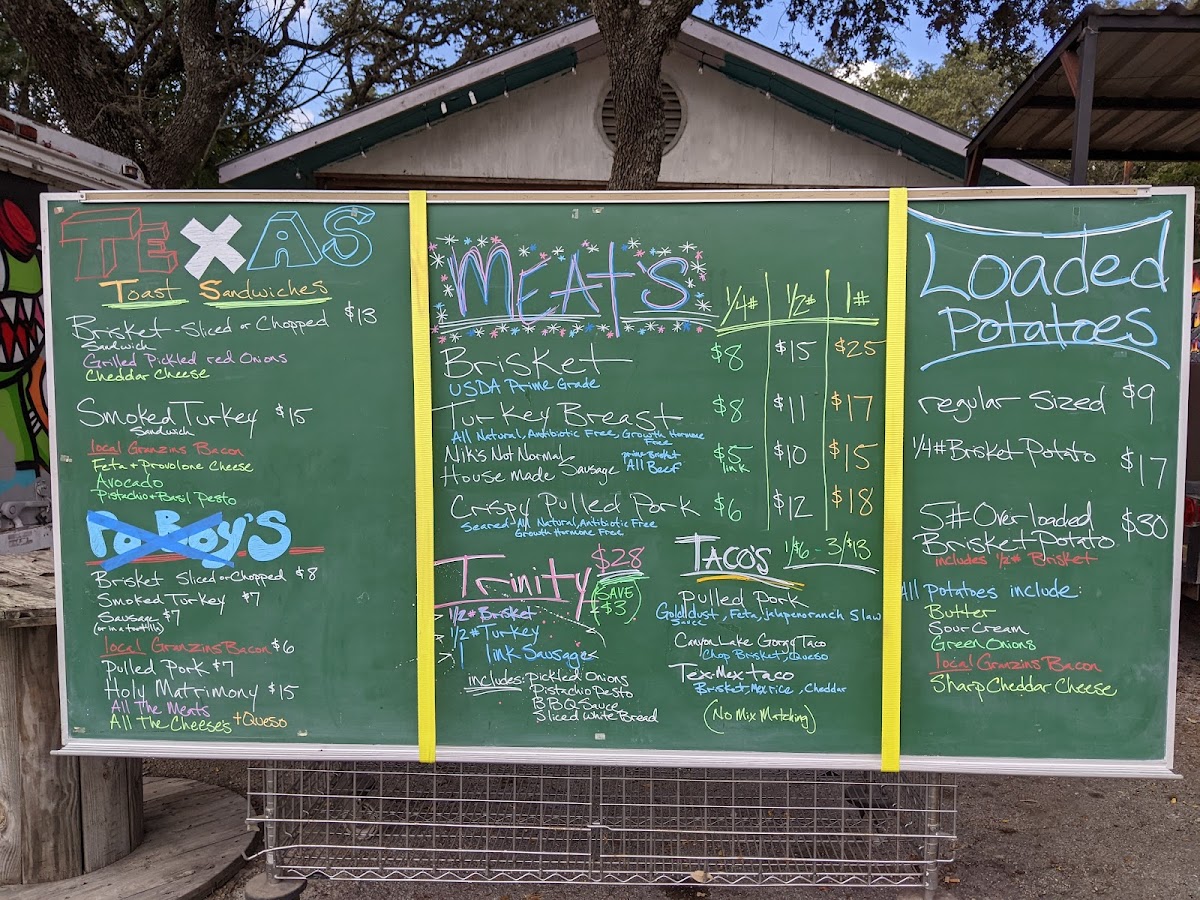 TEXAS
Toast Sandwiches
Brisket-Sliced or Chopped $13
Sandwich
Grilled Pickled red Onions
Cheddar Cheese
Smoked Turkey $15
Sandwich
local Granzins Bacon
Feta + Provolone Cheese
Avocado
Pistachio + Basil Pesto
Po Boy's
Brisket Sliced or Chopped $8
Smoked Turkey $7
Sausage $7
(or in a tortilla)
local Granzins Bacon $6
Pulled Pork $7
Holy Matrimony $15
All The Meats
All The Cheese's + Queso
MEAT'S
1/4# 1/2# 1#
Brisket $8 $15 $25
USDA Prime Grade
Turkey Breast $8 $11 $17
All Natural, Antibiotic Free, Growth Hormone
Free
Nik's Not Normal prime Brisket $5 $10 $15
House Made Sausage All Beef link
Crispy Pulled Pork $6 $12 $18
Seared-All Natural, Antibiotic Free
Growth Hormone Free
Trinity $28
SAVE
$3
1/2# Brisket
1/2# Turkey
1 link Sausages
includes: Pickled Onions
Pistachio Pesto
BBQ Sauce
Sliced White Bread
TACO'S 1/$6 - 3/$13
Pulled Pork
Gold dust, Feta, jalapenoranch Slaw
Sauce
Canyon Lake Gorge Taco
Chop Brisket, Queso
Tex-Mex taco
Brisket, Mex rice, Cheddar
(No Mix Matching)
Loaded
Potatoes
regular Sized $9
1/4# Brisket Potato $17
5# Over loaded $30
Brisket Potato
includes 1/2# Brisket
All Potatoes include:
Butter
Sour Cream
Green Onions
local Granzins Bacon
Sharp Cheddar Cheese